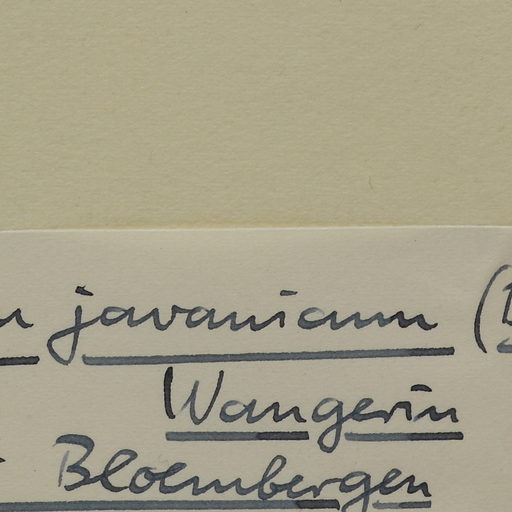 javanicum (B
Wangerin
Bloembergen